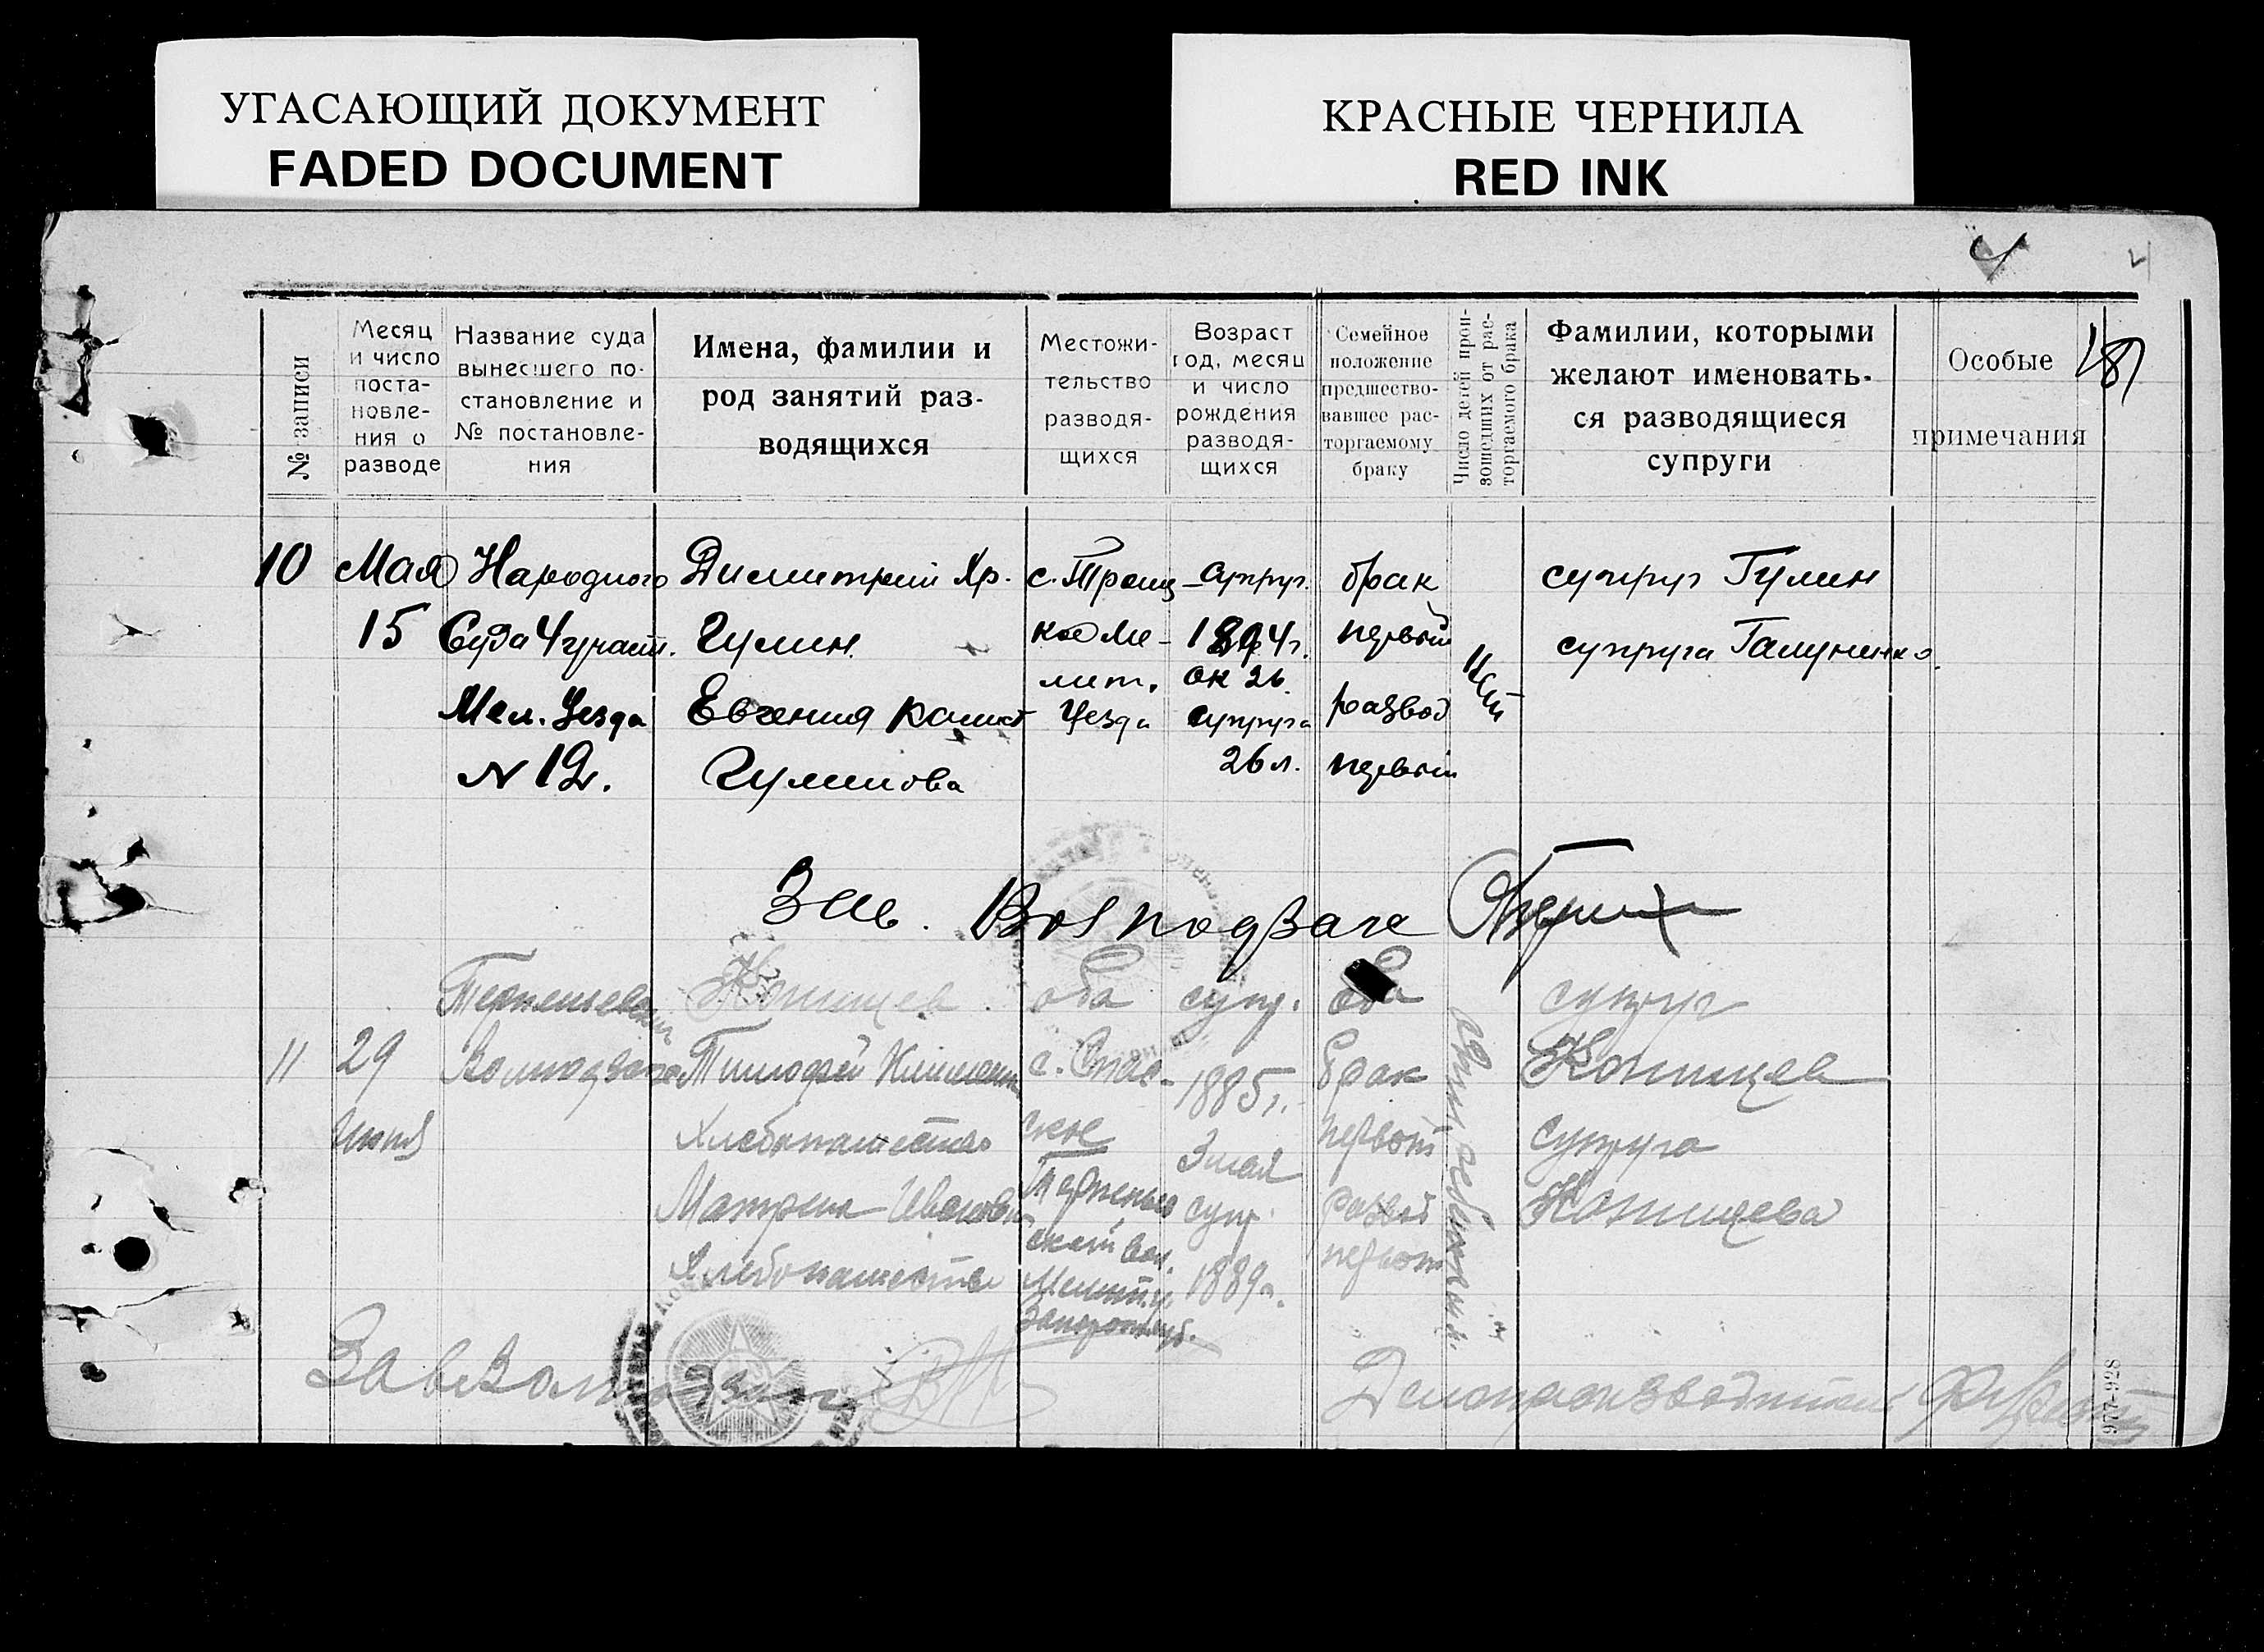 УГАСАЮЩИЙ ДОКУМЕНТ
FADED DOCUMENT
КРАСНЫЕ ЧЕРНИЛА
RED INK
4
4
№ записи
Месяц
и число
поста-
новле-
ния о
разводе
Название суда
вынесшего по-
становление и
№ постановле-
ния
Имена, фамилии и
род занятий раз-
водящихся
Местожи-
тельство
разводя-
щихся
Возраст
год, месяц
и число
рождения
разводя-
щихся
Семейное
положение
предшество-
вавшее рас-
торгаемому
браку
Число детей прои-
зошедших от рас-
торгаемого брака
Фамилии, которыми
желают именовать-
ся разводящиеся
супруги
Особые
примечания
10
Мая
15
Народного
Суда 4 участ.
Мел. Уезда
N 12.
Димитрий Хр.
Гулин
Евгения
Гулинова
с. Троиц
кое Ме-
лит.
Уезда
супруг.
ок 26.
супруга
26 л.
брак
первый
развод
первый
супруг Гулин
супруга
Зав.
11
29
июня
Терпеньевский
Конищев
Тимофей
Хлебопашество
Матрена Ивановн
Хлебопашество
оба
с. Спас-
ское
Терпеньев
ской вол.
Мелит. у.
Запорож. губ.
супр.
1885 г.
3 мая
супр.
1889 г.
Оба
брак
первый
развод
первый
супруг
Конищев
супруга
Конищева
Делопроизводитель
977-928